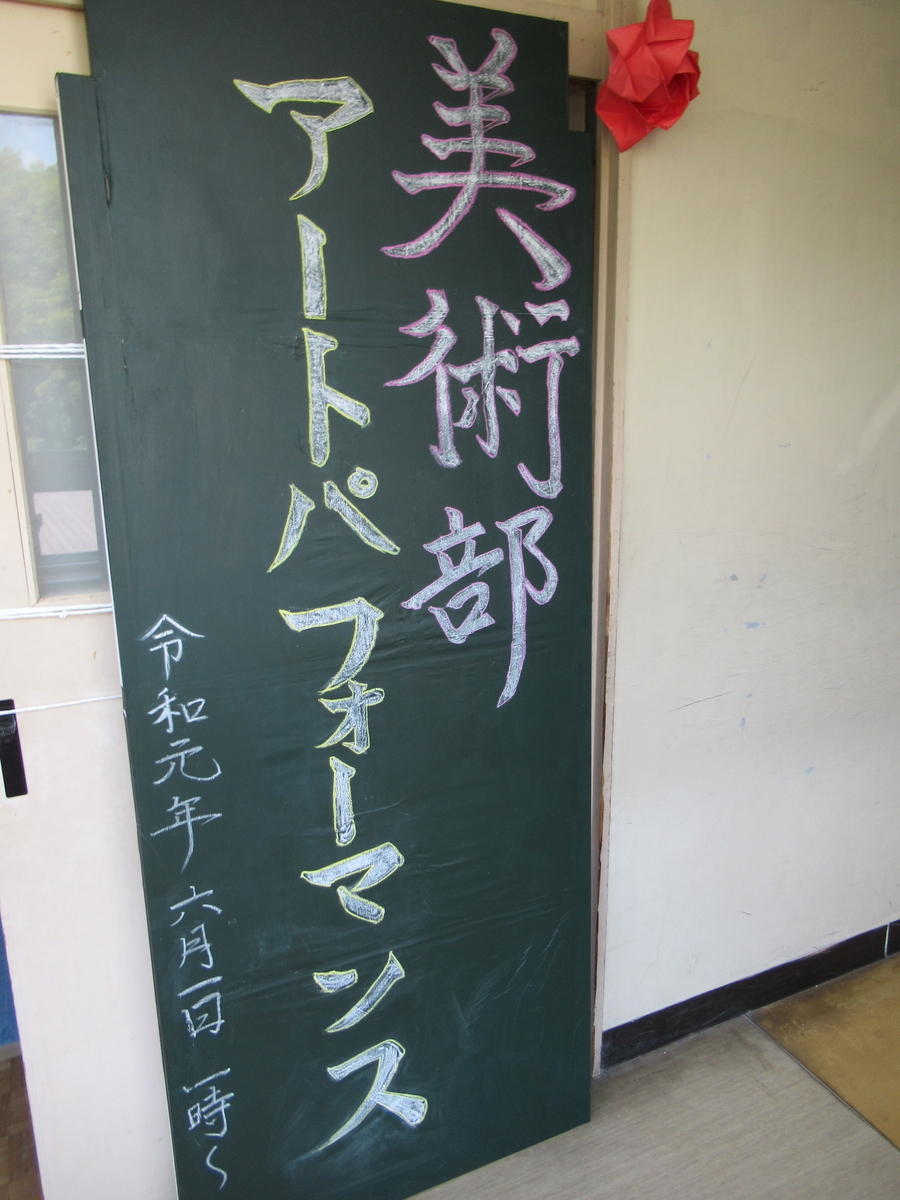 美術部
アートパフォーマンス
令和元年 六月一日 一時〜